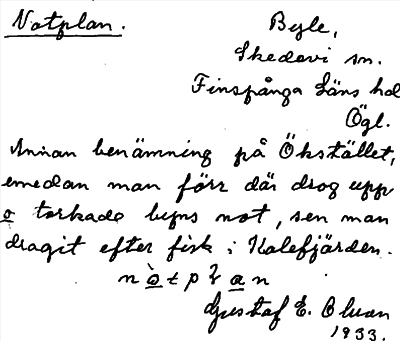 Notplan.
Byle,
Skedevi sn.
Finspånga Läns hd
Ögl.
Annan benämning på Ökstället,
emedan man förr där drog upp
o torkade byns not, sen man
dragit efter fisk i Kalefjärden.
nò̲tpla̲n
Gustaf E. Oluan
1933.